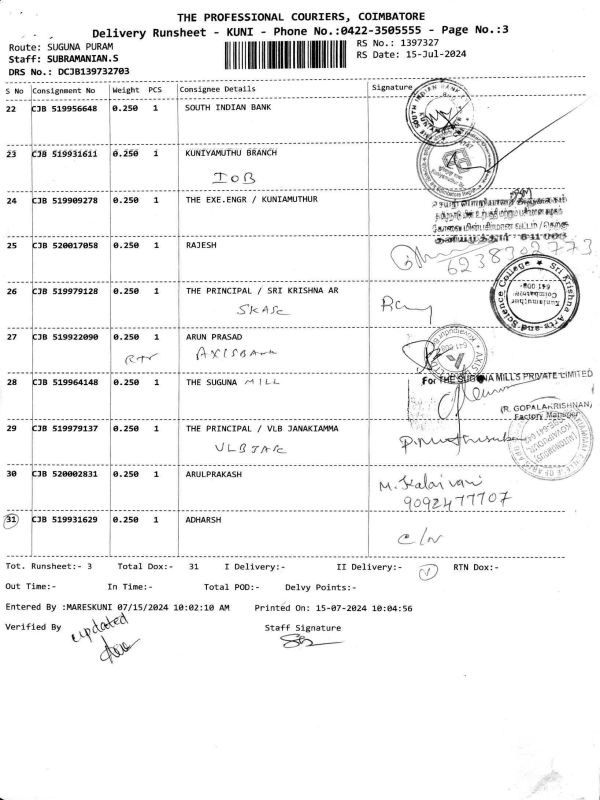 THE PROFESSIONAL COURIERS, COIMBATORE
Delivery Runsheet - KUNI - Phone No.:0422-3505555 - Page No.:3
Route: SUGUNA PURAM
RS No.: 1397327
Staff: SUBRAMANIAN.S
RS Date: 15-Jul-2024
DRS No.: DCJB139732703
S No Consignment No Weight PCS Consignee Details Signature
22 CJB 519956648 0.250 1 SOUTH INDIAN BANK
23 CJB 519931611 0.250 1 KUNIYAMUTHU BRANCH
IOB
24 CJB 519909278 0.250 1 THE EXE.ENGR / KUNIAMUTHUR
25 CJB 520017058 0.250 1 RAJESH
6238302773
26 CJB 519979128 0.250 1 THE PRINCIPAL / SRI KRISHNA AR
SKASC
Sri Krishna Arts and Science College
Kuniamuthur
Coimbatore
641 008
27 CJB 519922090 0.250 1 ARUN PRASAD
RTR AXIS Bank
28 CJB 519964148 0.250 1 THE SUGUNA MILL
For THE SUGUNA MILLS PRIVATE LIMITED
(R. GOPALAKRISHNAN)
Factory Manager
29 CJB 519979137 0.250 1 THE PRINCIPAL / VLB JANAKIAMMA
VLBJAC
30 CJB 520002831 0.250 1 ARULPRAKASH
M. Kalaivani
9092477707
31 CJB 519931629 0.250 1 ADHARSH
C/N
Tot. Runsheet:- 3 Total Dox:- 31 I Delivery:- II Delivery:- RTN Dox:-
Out Time:- In Time:- Total POD:- Delvy Points:-
Entered By :MARESKUNI 07/15/2024 10:02:10 AM Printed On: 15-07-2024 10:04:56
Verified By updated Staff Signature